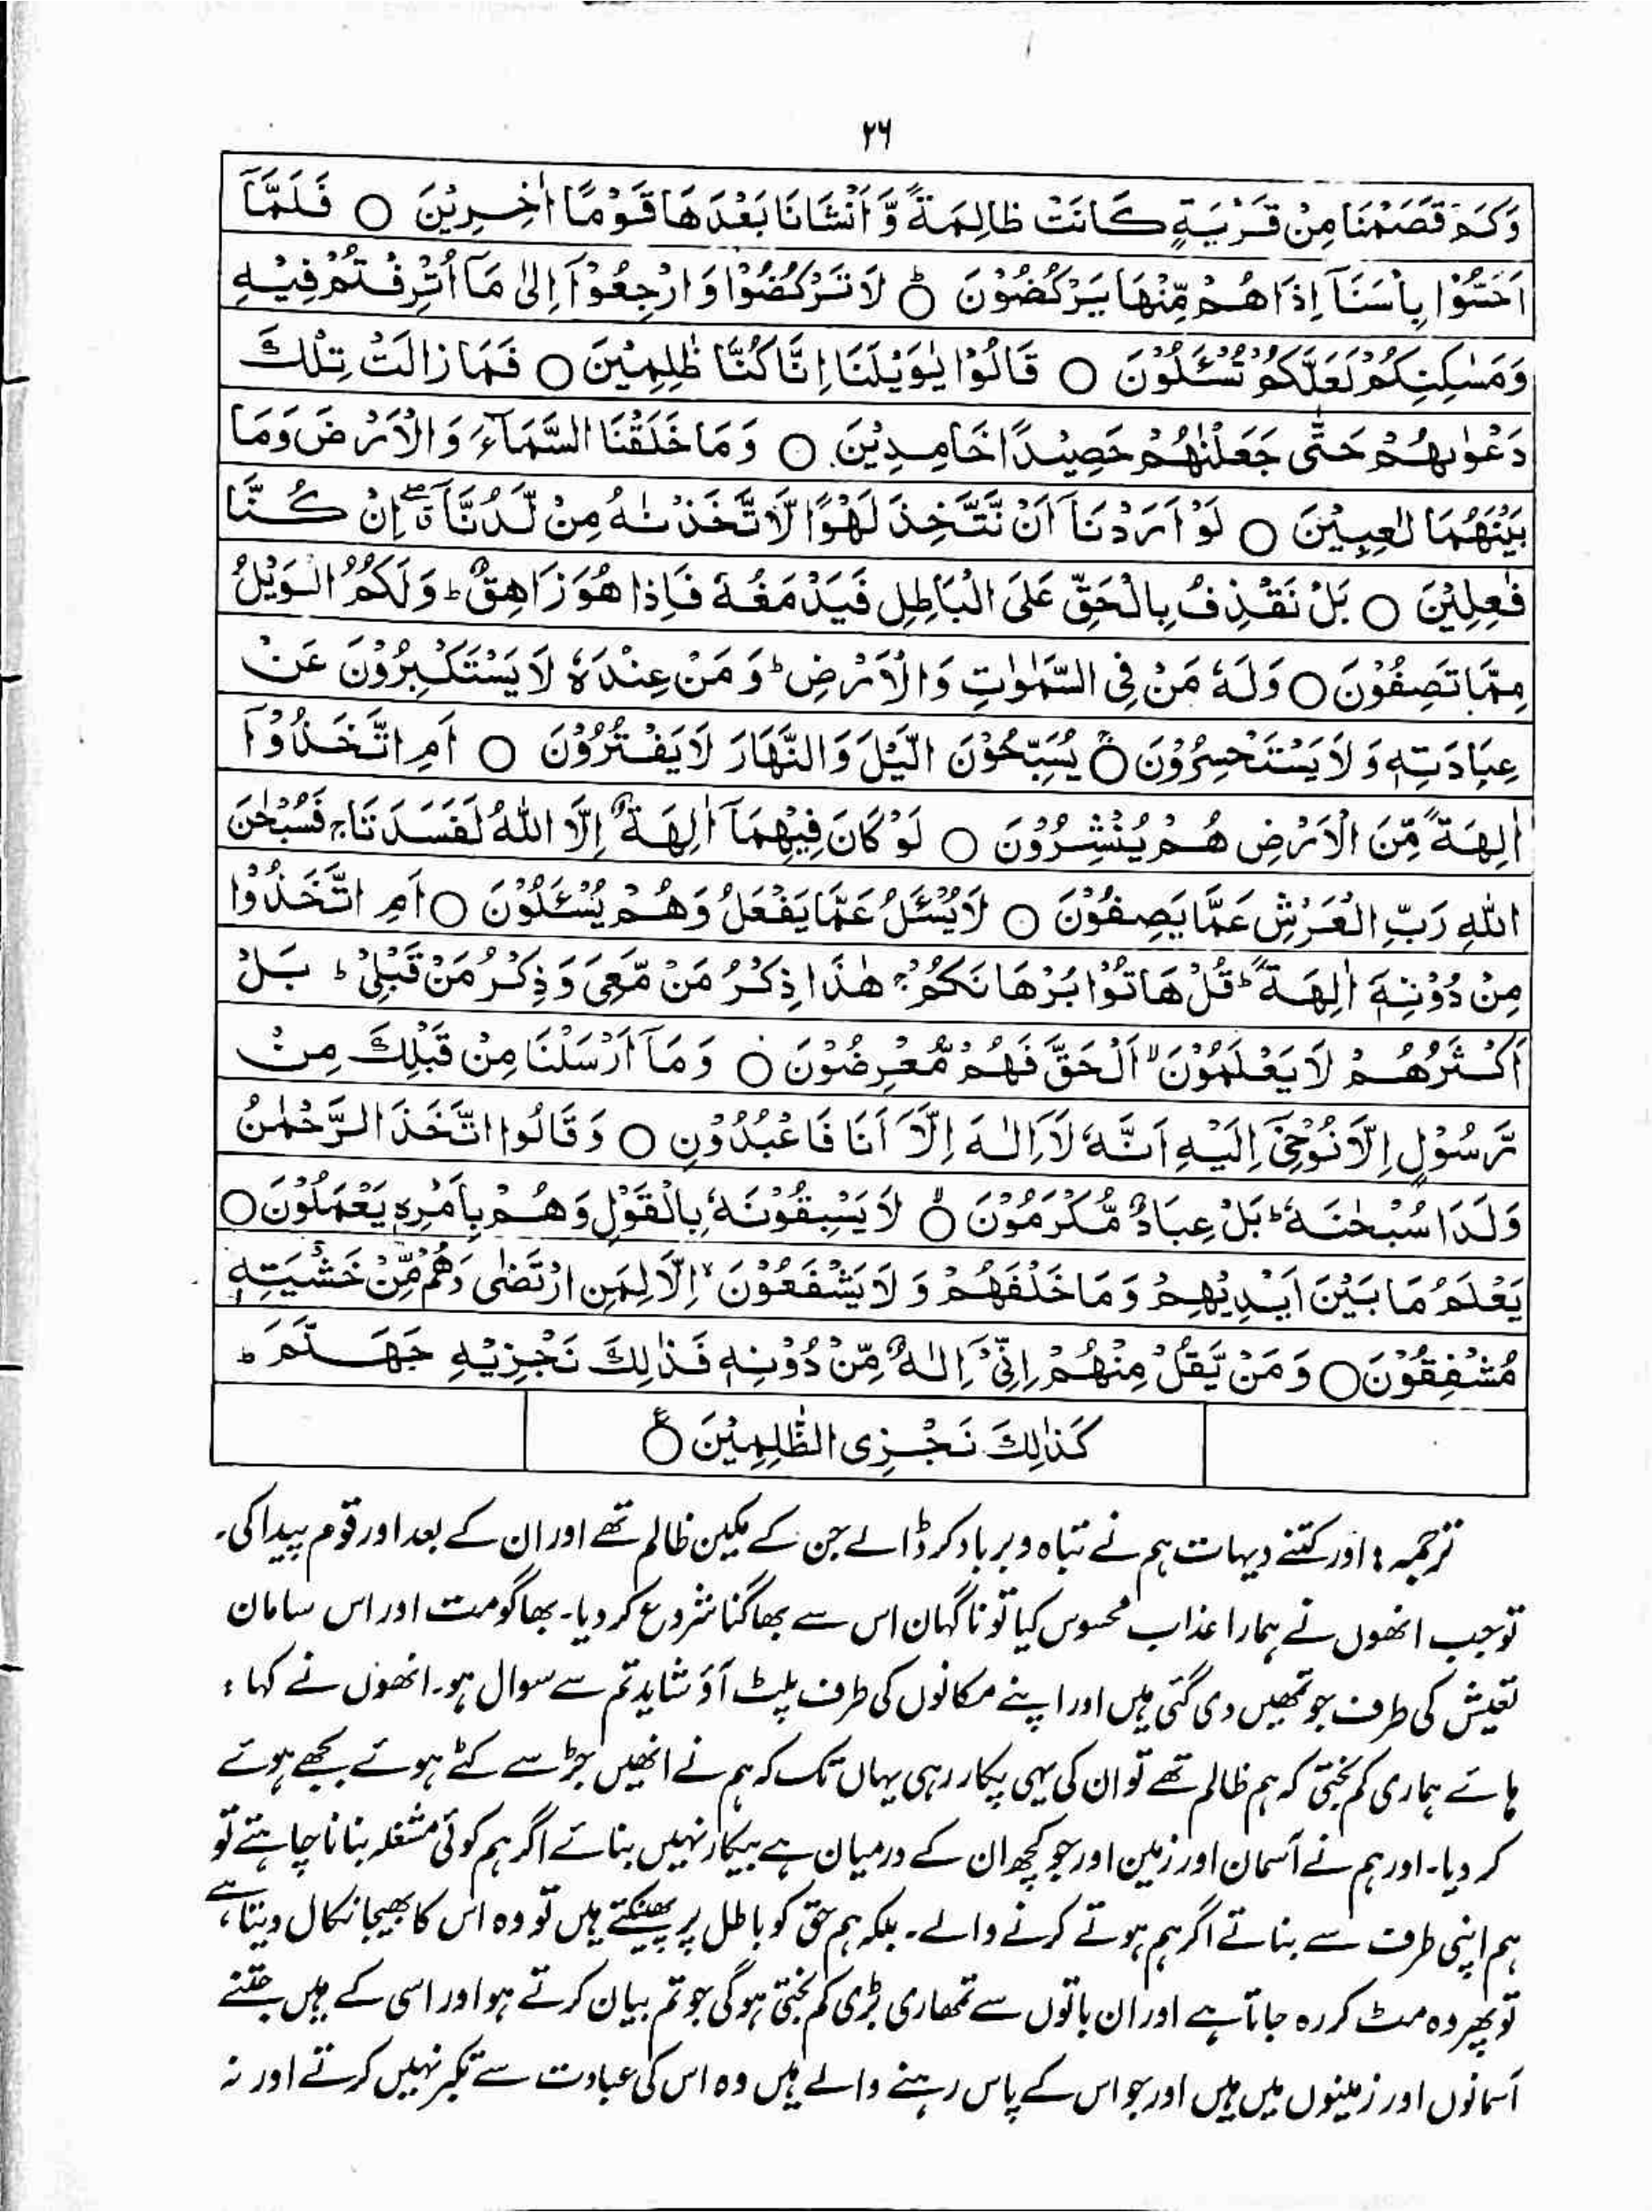 ۲۶
وَكَمْ قَصَمْنَا مِنْ قَرْيَةٍ كَانَتْ ظَالِمَةً وَّ اَنْشَانَا بَعْدَهَا قَوْمًا اٰخِرِيْنَ ○ فَلَمَّآ
اَحَسُّوْا بِاْسَنَآ اِذَا هُمْ مِّنْهَا يَرْكُضُوْنَ ○ لَا تَرْكُضُوْا وَ ارْجِعُوْٓا اِلٰى مَآ اُتْرِفْتُمْ فِيْهِ
وَمَسٰكِنِكُمْ لَعَلَّكُمْ تُسْئَلُوْنَ ○ قَالُوْا يٰوَيْلَنَا اِنَّا كُنَّا ظٰلِمِيْنَ ○ فَمَا زَالَتْ تِلْكَ
دَعْوٰىهُمْ حَتّٰى جَعَلْنٰهُمْ حَصِيْدًا خَامِدِيْنَ ○ وَمَا خَلَقْنَا السَّمَآءَ وَ الْاَرْضَ وَمَا
بَيْنَهُمَا لٰعِبِيْنَ ○ لَوْ اَرَدْنَآ اَنْ نَّتَّخِذَ لَهْوًا لَّاتَّخَذْنٰهُ مِنْ لَّدُنَّآ ۖ اِنْ كُنَّا
فٰعِلِيْنَ ○ بَلْ نَقْذِفُ بِالْحَقِّ عَلَى الْبَاطِلِ فَيَدْمَغُهٗ فَاِذَا هُوَ زَاهِقٌ ؕ وَلَكُمُ الْوَيْلُ
مِمَّا تَصِفُوْنَ ○ وَلَهٗ مَنْ فِى السَّمٰوٰتِ وَ الْاَرْضِ ؕ وَ مَنْ عِنْدَهٗ لَا يَسْتَكْبِرُوْنَ عَنْ
عِبَادَتِهٖ وَ لَا يَسْتَحْسِرُوْنَ ○ يُسَبِّحُوْنَ الَّيْلَ وَ النَّهَارَ لَا يَفْتُرُوْنَ ○ اَمِ اتَّخَذُوْٓا
اٰلِهَةً مِّنَ الْاَرْضِ هُمْ يُنْشِرُوْنَ ○ لَوْ كَانَ فِيْهِمَآ اٰلِهَةٌ اِلَّا اللّٰهُ لَفَسَدَتَا ۚ فَسُبْحٰنَ
اللّٰهِ رَبِّ الْعَرْشِ عَمَّا يَصِفُوْنَ ○ لَا يُسْئَلُ عَمَّا يَفْعَلُ وَهُمْ يُسْئَلُوْنَ ○ اَمِ اتَّخَذُوْا
مِنْ دُوْنِهٖٓ اٰلِهَةً ؕ قُلْ هَاتُوْا بُرْهَانَكُمْ ۚ هٰذَا ذِكْرُ مَنْ مَّعِىَ وَ ذِكْرُ مَنْ قَبْلِىْ ؕ بَلْ
اَكْثَرُهُمْ لَا يَعْلَمُوْنَ ۙ اَلْحَقَّ فَهُمْ مُّعْرِضُوْنَ ○ وَ مَآ اَرْسَلْنَا مِنْ قَبْلِكَ مِنْ
رَّسُوْلٍ اِلَّا نُوْحِىْٓ اِلَيْهِ اَنَّهٗ لَآ اِلٰهَ اِلَّآ اَنَا فَاعْبُدُوْنِ ○ وَ قَالُوا اتَّخَذَ الرَّحْمٰنُ
وَلَدًا سُبْحٰنَهٗ ؕ بَلْ عِبَادٌ مُّكْرَمُوْنَ ○ لَا يَسْبِقُوْنَهٗ بِالْقَوْلِ وَ هُمْ بِاَمْرِهٖ يَعْمَلُوْنَ ○
يَعْلَمُ مَا بَيْنَ اَيْدِيْهِمْ وَ مَا خَلْفَهُمْ وَ لَا يَشْفَعُوْنَ ۙ اِلَّا لِمَنِ ارْتَضٰى وَهُمْ مِّنْ خَشْيَتِهٖ
مُشْفِقُوْنَ ○ وَ مَنْ يَّقُلْ مِنْهُمْ اِنِّىْٓ اِلٰهٌ مِّنْ دُوْنِهٖ فَذٰلِكَ نَجْزِيْهِ جَهَنَّمَ ؕ
كَذٰلِكَ نَجْزِى الظّٰلِمِيْنَ ○
ترجمہ : اور کتنے دیہات ہم نے تباہ و برباد کر ڈالے جن کے مکین ظالم تھے اور ان کے بعد اور قوم پیدا کی۔
تو جب انھوں نے ہمارا عذاب محسوس کیا تو ناگہان اس سے بھاگنا شروع کر دیا۔ بھاگو مت اور اس سامان
تعیش کی طرف جو تمھیں دی گئی ہیں اور اپنے مکانوں کی طرف پلٹ آؤ شاید تم سے سوال ہو۔ انھوں نے کہا :
ہائے ہماری کم بختی کہ ہم ظالم تھے تو ان کی یہی پکار رہی یہاں تک کہ ہم نے انھیں جڑ سے کٹے ہوئے بجھے ہوئے
کر دیا۔ اور ہم نے آسمان اور زمین اور جو کچھ ان کے درمیان ہے بیکار نہیں بنائے اگر ہم کوئی مشغلہ بنانا چاہتے تو
ہم اپنی طرف سے بناتے اگر ہم ہوتے کرنے والے۔ بلکہ ہم حق کو باطل پر پھینکتے ہیں تو وہ اس کا بھیجا نکال دیتا ہے،
تو پھر وہ مٹ کر رہ جاتا ہے اور ان باتوں سے تمھاری بڑی کم بختی ہوگی جو تم بیان کرتے ہو اور اسی کے ہیں جتنے
آسمانوں اور زمینوں میں ہیں اور جو اس کے پاس رہنے والے ہیں وہ اس کی عبادت سے تکبر نہیں کرتے اور نہ